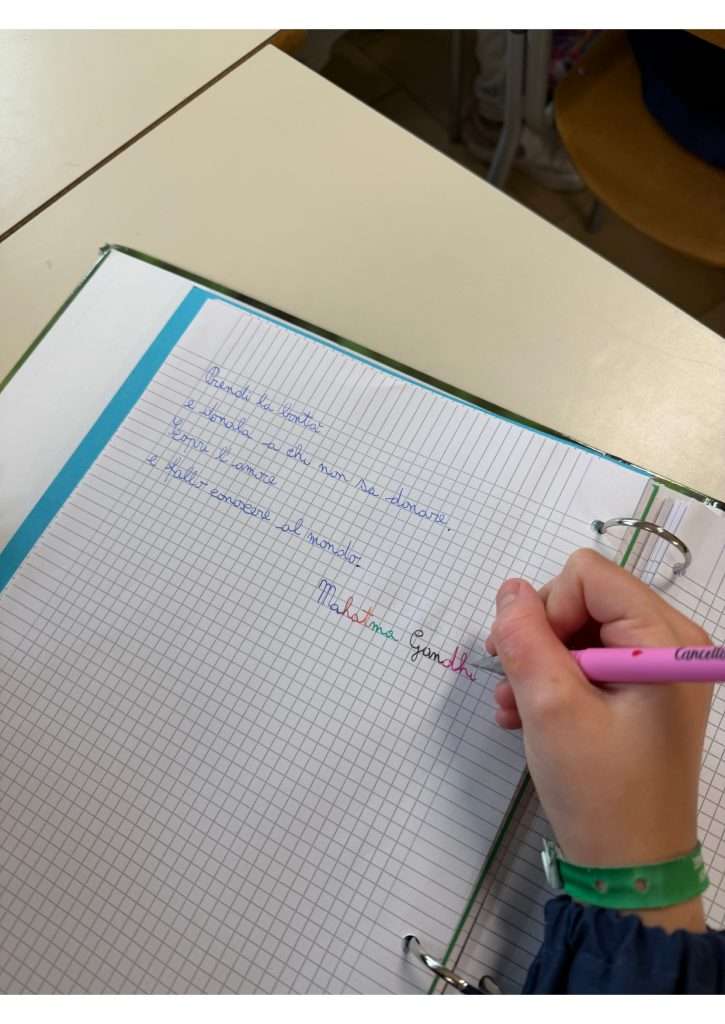 Prendi la bontà
e donala a chi non sa donare.
Scopri l'amore
e fallo conoscere al mondo.
Mahatma Gandhi
Cancella